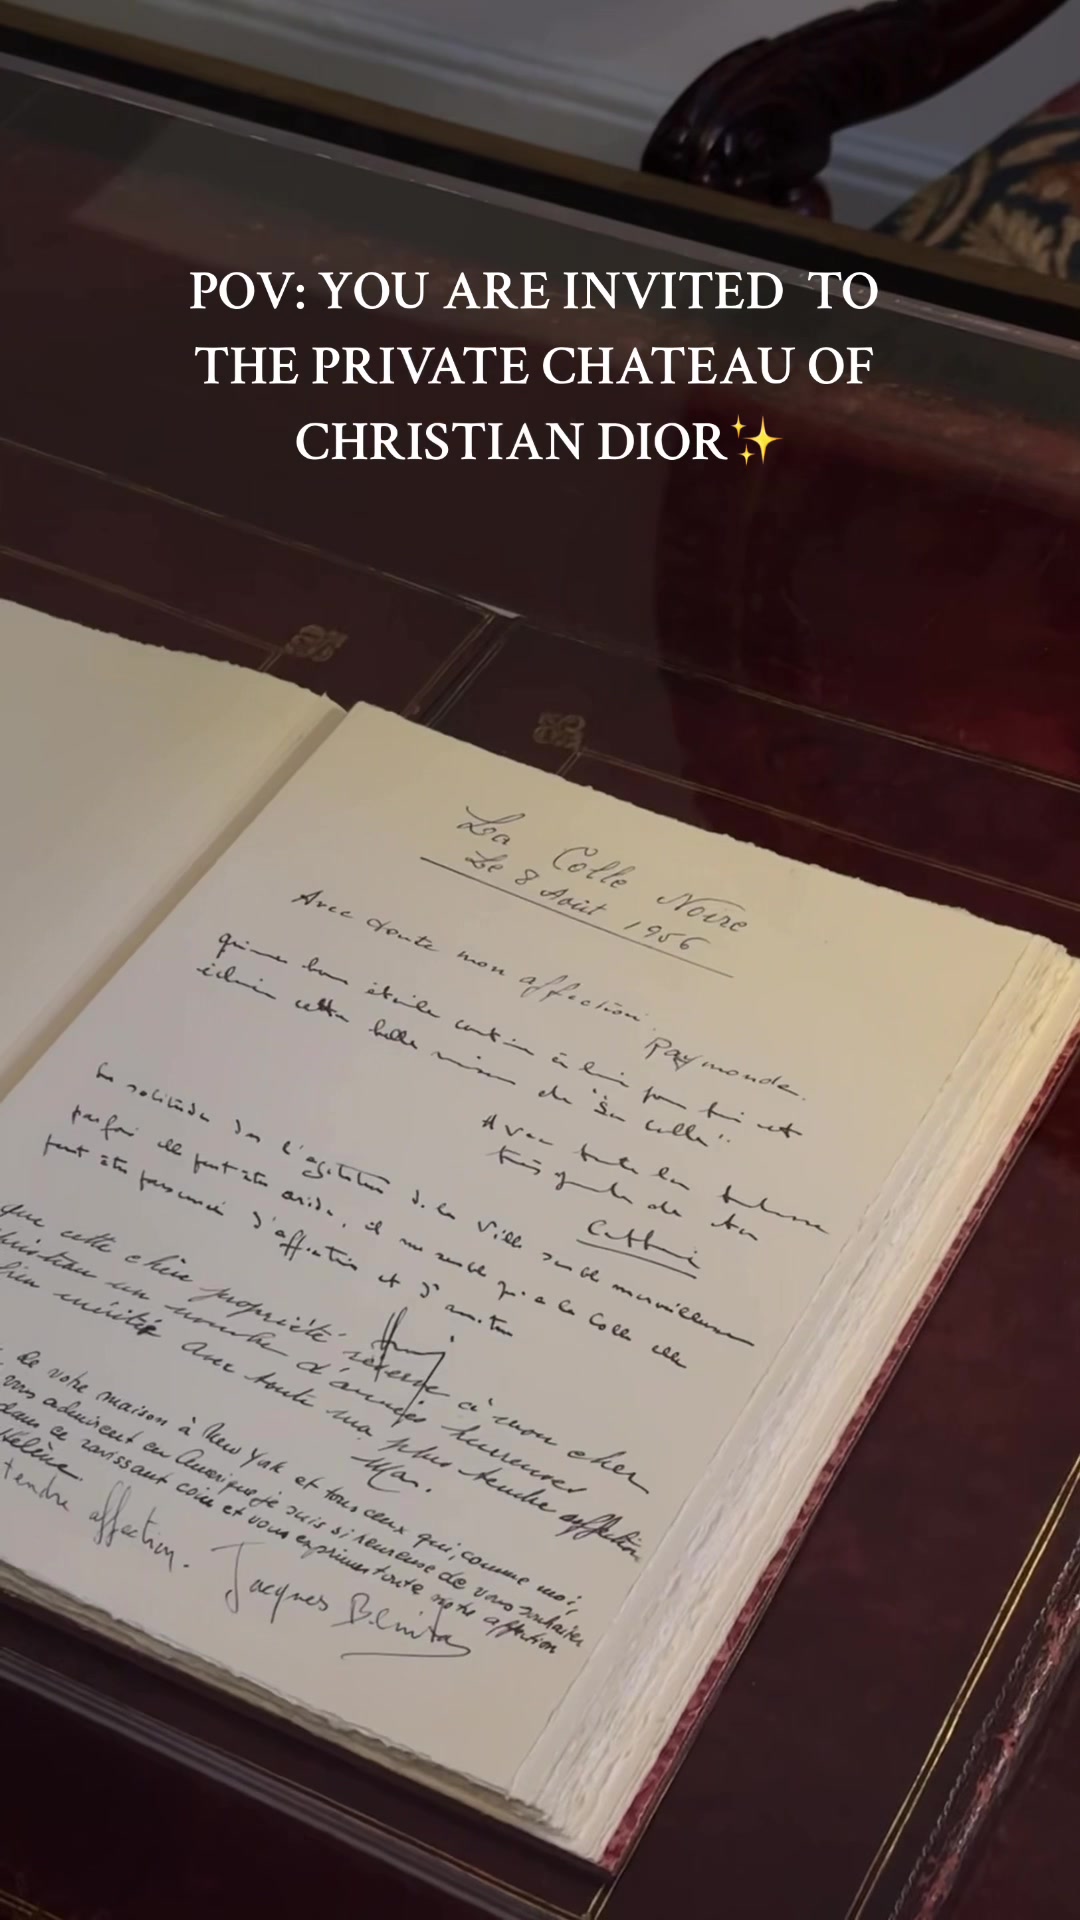 POV: YOU ARE INVITED TO
THE PRIVATE CHATEAU OF
CHRISTIAN DIOR✨
La Colle Noire
Le 8 Août 1956
Avec toute mon affection.
Raymonde.
bonne étoile pour lui et
cette belle maison de "La Colle".
Avec toute la tendresse
très grande de ton
La solitude de l'agitation de la ville semble merveilleuse
parfois elle peut être aride, il me semble qu'à la Colle elle
peut être parsemée d'affection et d'amitié
que cette chère propriété réserve à mon cher
Christian un nombre d'années heureuses
bien mérité Avec toute ma plus tendre affection
Mar.
de votre maison à New York et tous ceux qui, comme moi,
vous admirent en Amérique, je suis si heureuse de vous souhaiter
dans ce ravissant coin et vous exprimer toute notre affection
Hélène.
tendre affection.
Jacques Benita